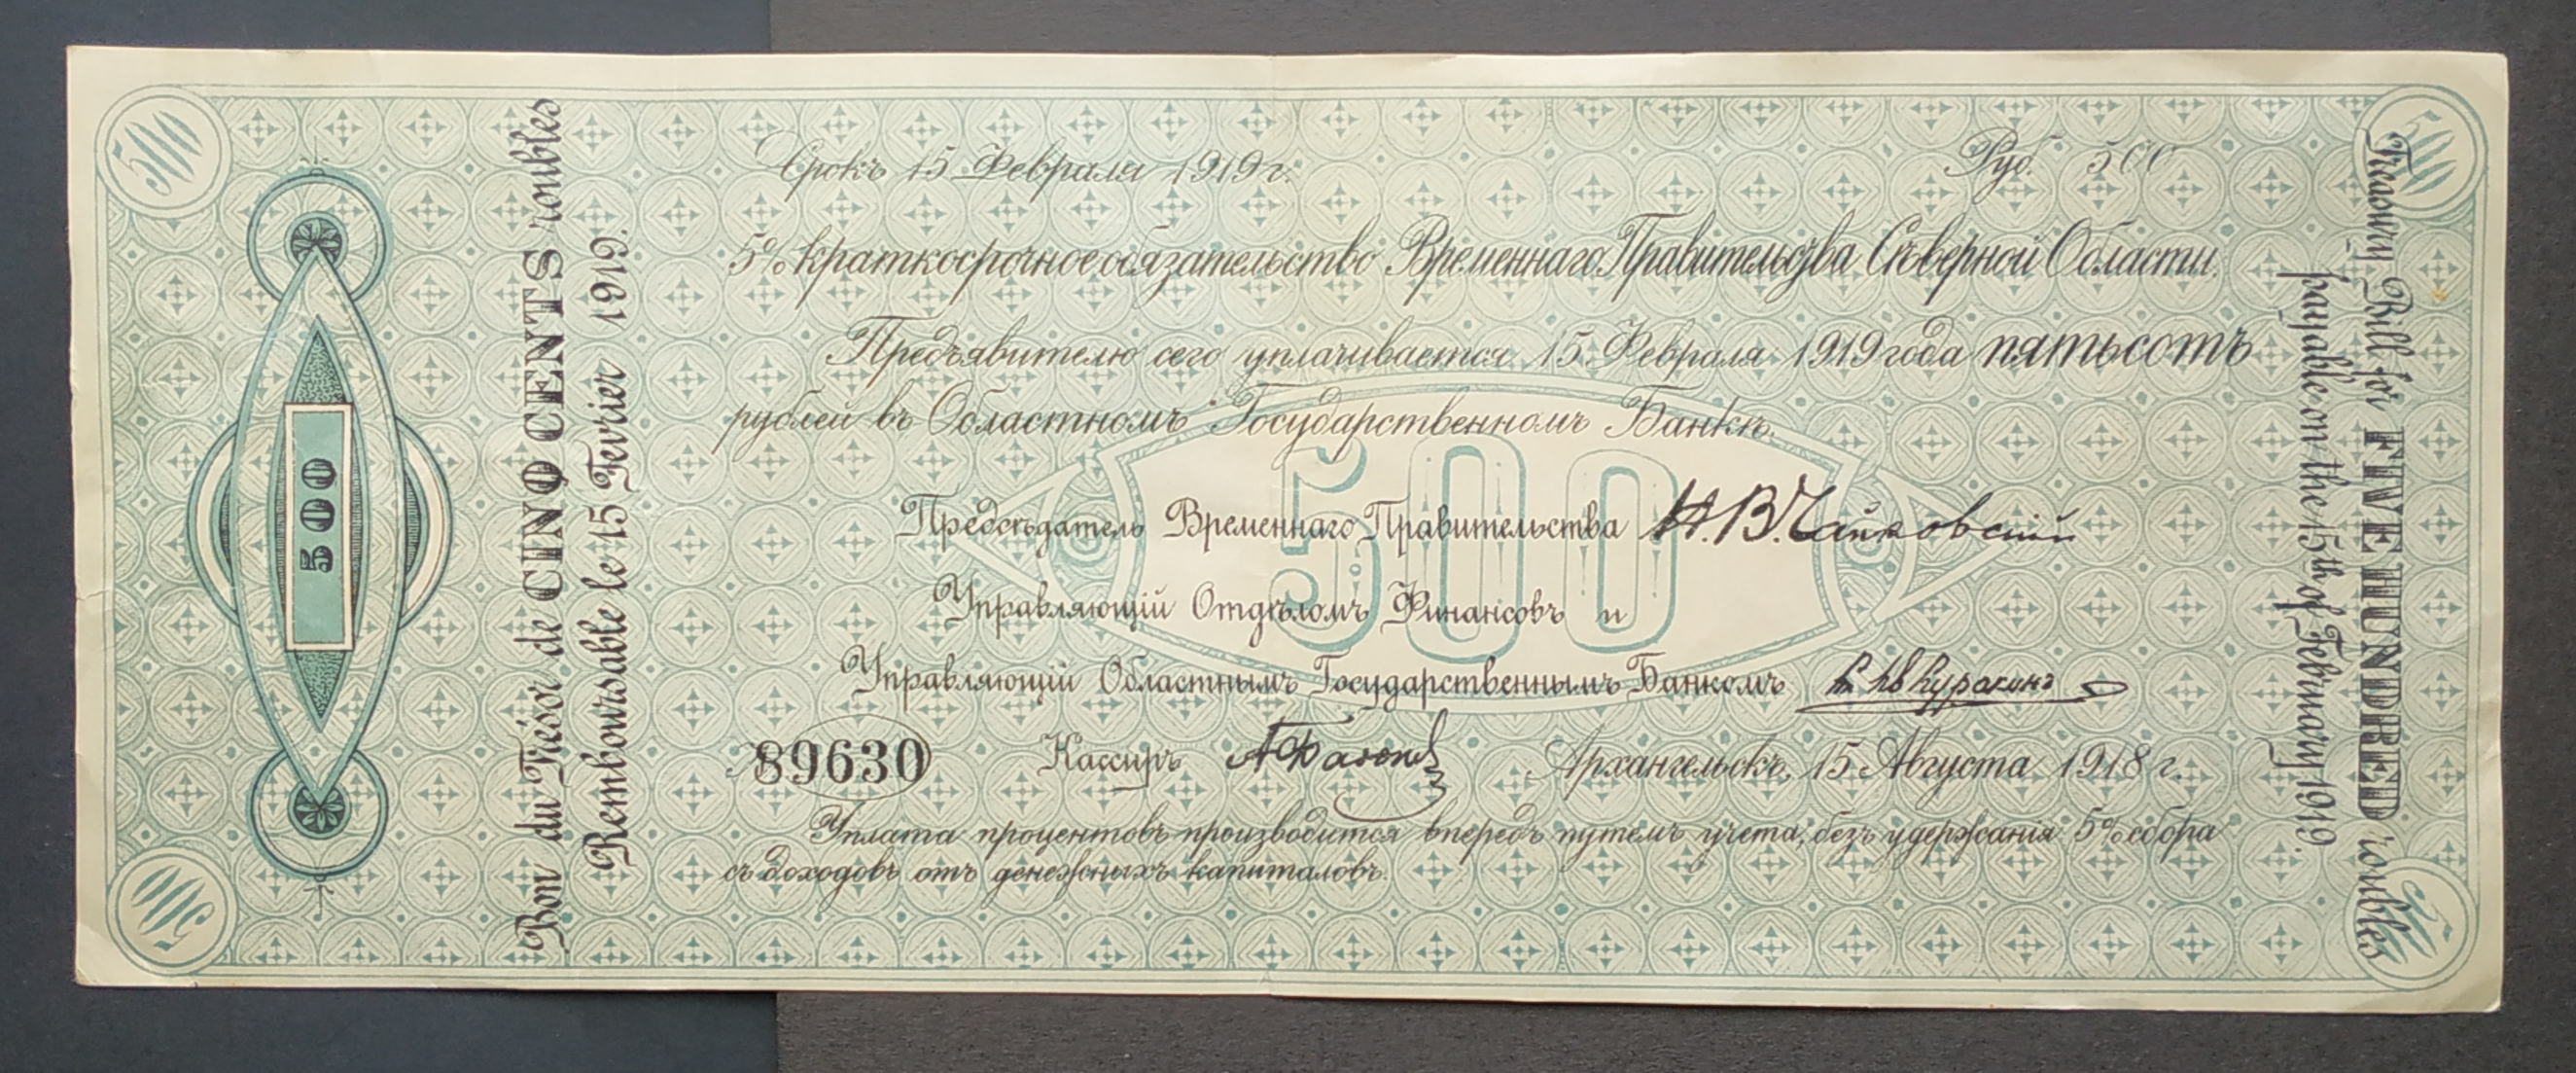 Bon du Trésor de CINQ CENTS roubles
Remboursable le 15 Fevrier 1919.
500
Срокъ 15 Февраля 1919 г.
Руб. 500
5% краткосрочное обязательство Временнаго Правительства Сѣверной Области.
Предъявителю сего уплачивается 15 Февраля 1919 года пятьсотъ
рублей въ Областномъ Государственномъ Банкѣ.
500
Предсѣдатель Временнаго Правительства Н. В. Чайковскій
Управляющій Отдѣломъ Финансовъ и
Управляющій Областнымъ Государственнымъ Банкомъ Куракинъ
89630
Кассиръ
Архангельскъ, 15 Августа 1918 г.
Уплата процентовъ производится впередъ путемъ учета, безъ удержанія 5% сбора
съ доходовъ отъ денежныхъ капиталовъ.
Treasury Bill for FIVE HUNDRED roubles
payable on the 15th of February 1919.
500
500
500
500